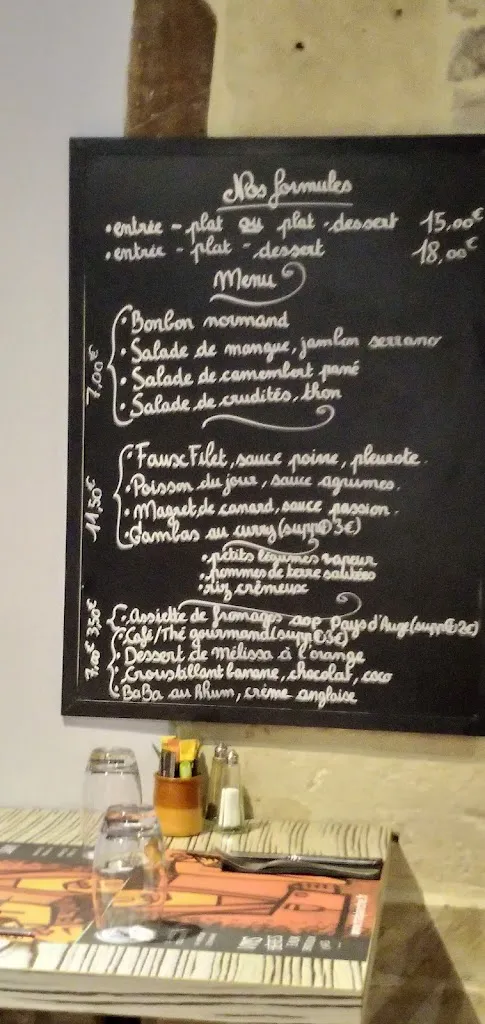 Nos formules
• entrée - plat ou plat - dessert 15,00€
• entrée - plat - dessert 18,00€
Menu
7,00€
• Bonbon normand
• Salade de mangue, jambon serrano
• Salade de camembert pané
• Salade de crudités, thon
11,50€
• Faux Filet, sauce poivre, pleurote.
• Poisson du jour, sauce agrumes.
• Magret de canard, sauce passion.
• Gambas au curry (supp 3€)
• petits légumes vapeur
• pommes de terre sautées
• riz crêmeux
3,50€
• Assiette de fromages aop Pays d'Auge (supp 2€)
• Café/Thé gourmand (supp 3€)
• Dessert de Mélissa à l'orange
• Croustillant banane, chocolat, coco
• BaBa au Rhum, crème anglaise